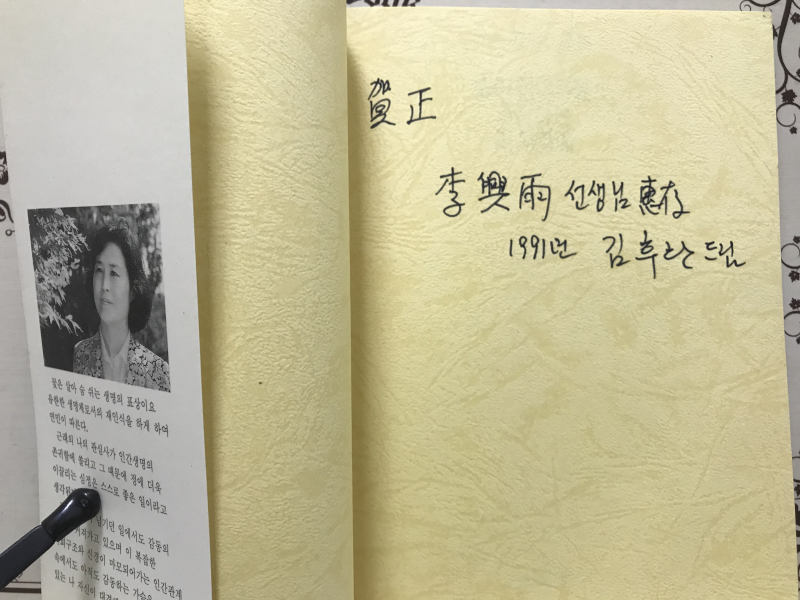 꽃은 살아 숨 쉬는 생명의 표상이요
유한한 생명체로서의 재인식을 하게 하여
연민이 따른다.
근래의 나의 관심사가 인간생명의
존귀함에 쏠리고 그 때문에 정에 더욱
이끌리는 심정은 스스로 좋은 일이라고
생각
남기던 일에서도 감동의
가고 있으며 이 복잡한
구조와 신경이 마모되어가는 인간관계
속에서도 아직도 감동하는 가슴을
있는 나 자신이
賀正
李興雨 선생님 惠存
1991년 김후란 드림